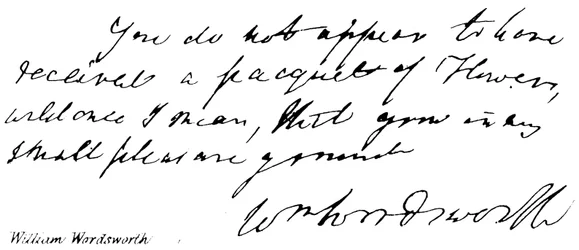 You do not appear to have
received a pacquet of Flowers,
wild ones I mean, that grow in my
small pleasure grounds
Wm Wordsworth
William Wordsworth